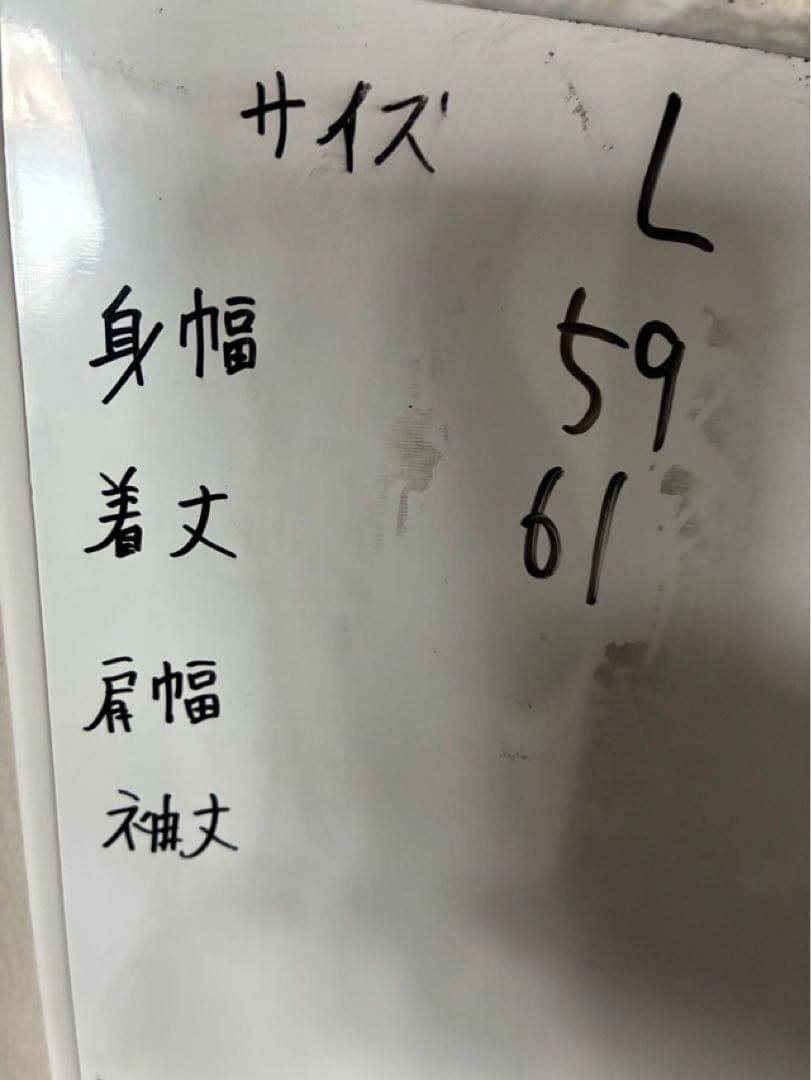 サイズ L
身幅 59
着丈 61
肩幅
袖丈